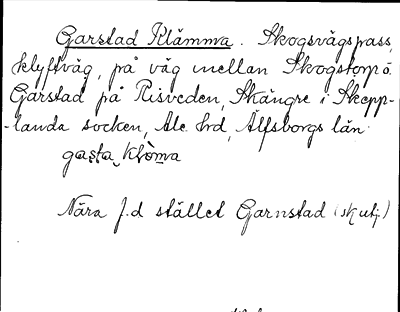 Garstad Klämma. Skogsvägspass,
klyftväg, på väg mellan Skogstorp o.
Garstad på Risveden, Skångre i Skepp-
-landa socken, Ale hrd, Älfsborgs län.
gasta klöma
Nära f.d stället Garnstad (sk utj)